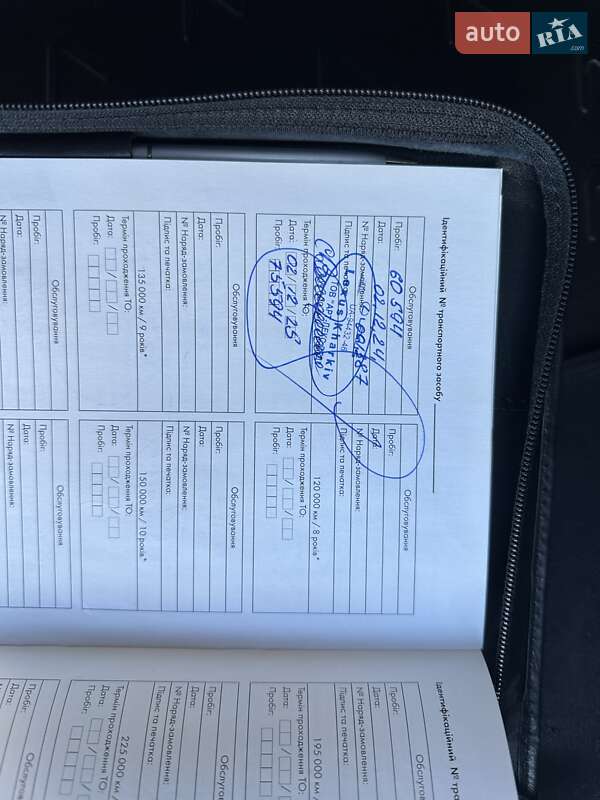 auto
RIA
.com
Ідентифікаційний № транспортного засобу
Обслуговування
Пробіг: 60 594
Дата: 02.12.24
№ Наряд-замовлення:
Підпис та печатка:
UA-84432-48
Lexus Kharkiv
Термін проходження ТО:
Дата: 02/12/25
Пробіг: 75594
Обслуговування
Пробіг:
Дата:
№ Наряд-замовлення:
Підпис та печатка:
120 000 км / 8 років*
Термін проходження ТО:
Дата:
Пробіг:
Обслуговування
Пробіг:
Дата:
№ Наряд-замовлення:
Підпис та печатка:
135 000 км / 9 років*
Термін проходження ТО:
Дата:
Пробіг:
Обслуговування
Пробіг:
Дата:
№ Наряд-замовлення:
Підпис та печатка:
150 000 км / 10 років*
Термін проходження ТО:
Дата:
Пробіг:
Обслуговування
Пробіг:
Дата:
№ Наряд-замовлення:
Обслуговування
Пробіг:
Дата:
№ Наряд-замовлення:
Ідентифікаційний № тра
Обслугов
Пробіг:
Дата:
№ Наряд-замовлення:
Підпис та печатка:
195 000
Термін проходження ТО:
Дата:
Пробіг:
Обслугову
Пробіг:
Дата:
№ Наряд-замовлення:
Підпис та печатка:
225 000
Термін проходження ТО:
Дата:
Пробіг:
Обслуго
Пробіг:
Дата:
№ Наряд-замовлення: